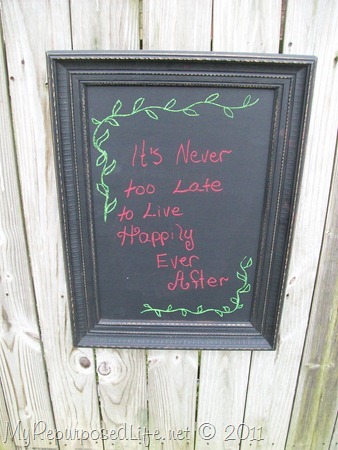 It's Never
too Late
to Live
Happily
Ever
After
MyRepurposedLife.net © 2011